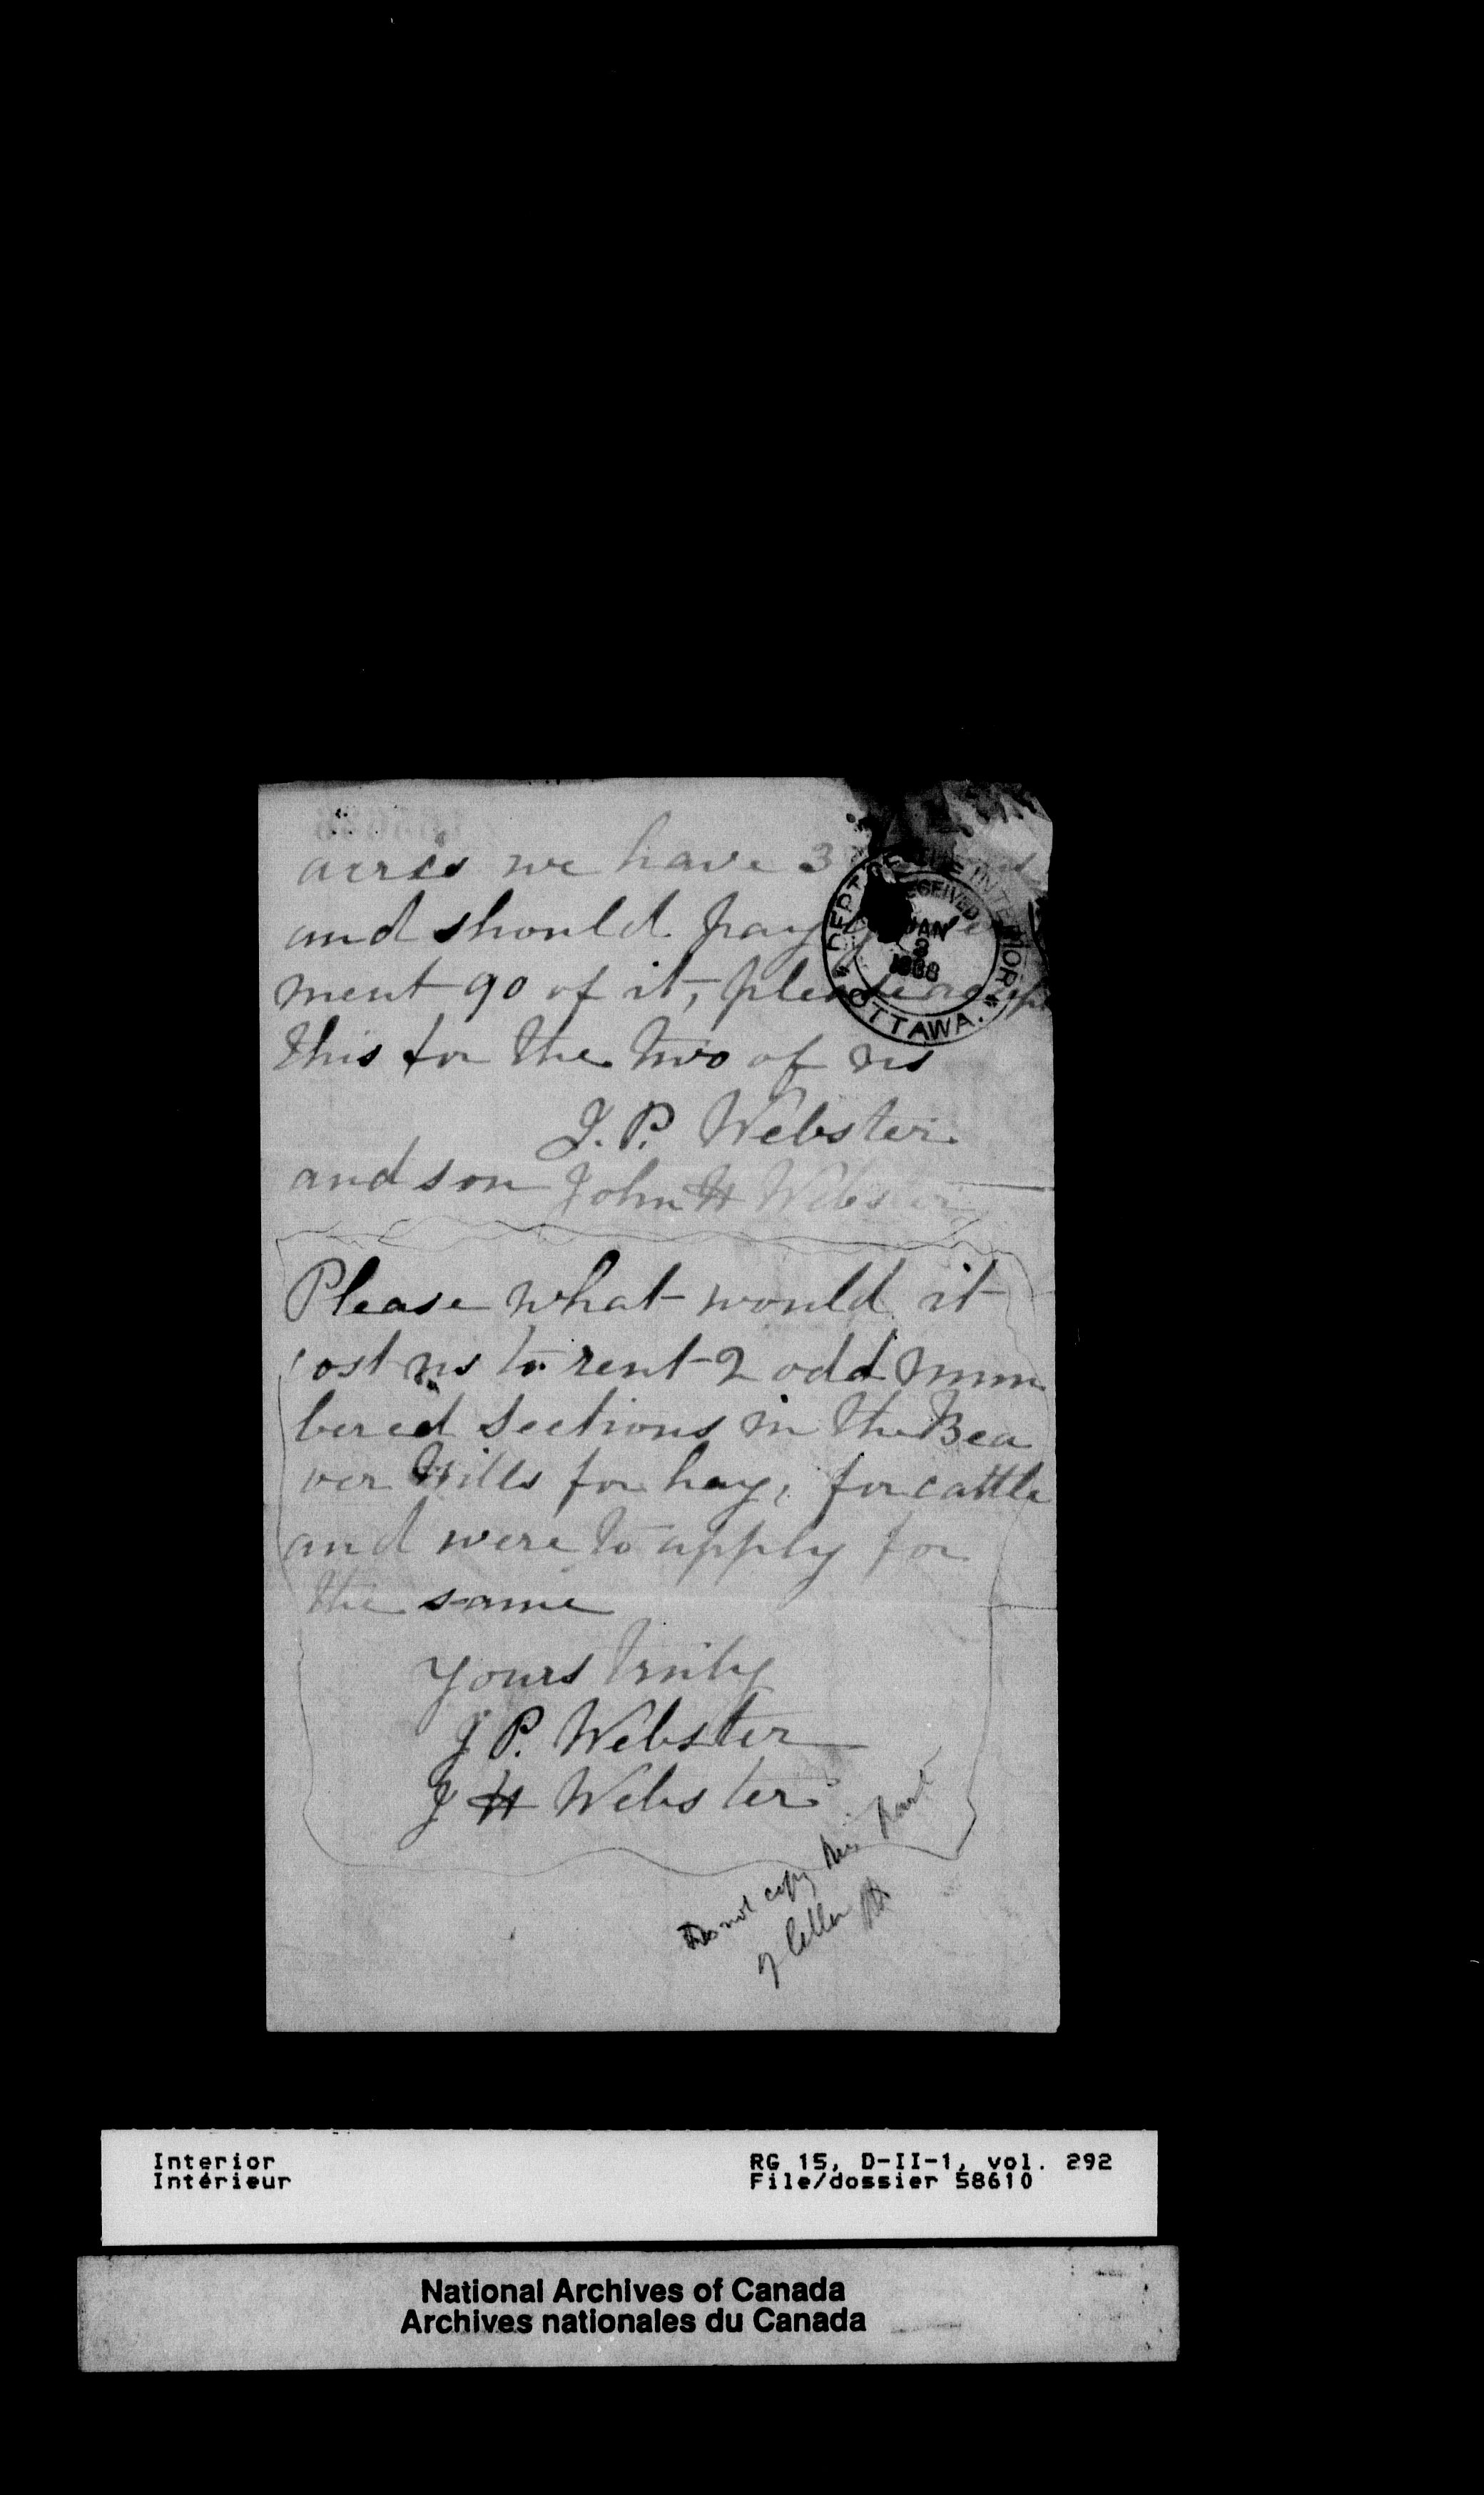 acres we have 3
and should pay
ment 90 of it, please accept
this for the two of us
J. P. Webster
and son John H Webster
Please what would it
cost us to rent 2 odd num
bered sections in the Bea
ver Hills for hay, for cattle
and were to apply for
the same
Yours truly
J P. Webster
J H Webster
Do not copy this part
of letter
DEPT OF THE INTERIOR
RECEIVED
JAN
3
1888
OTTAWA.
Interior
Intérieur
RG 15, D-II-1, vol. 292
File/dossier 58610
National Archives of Canada
Archives nationales du Canada